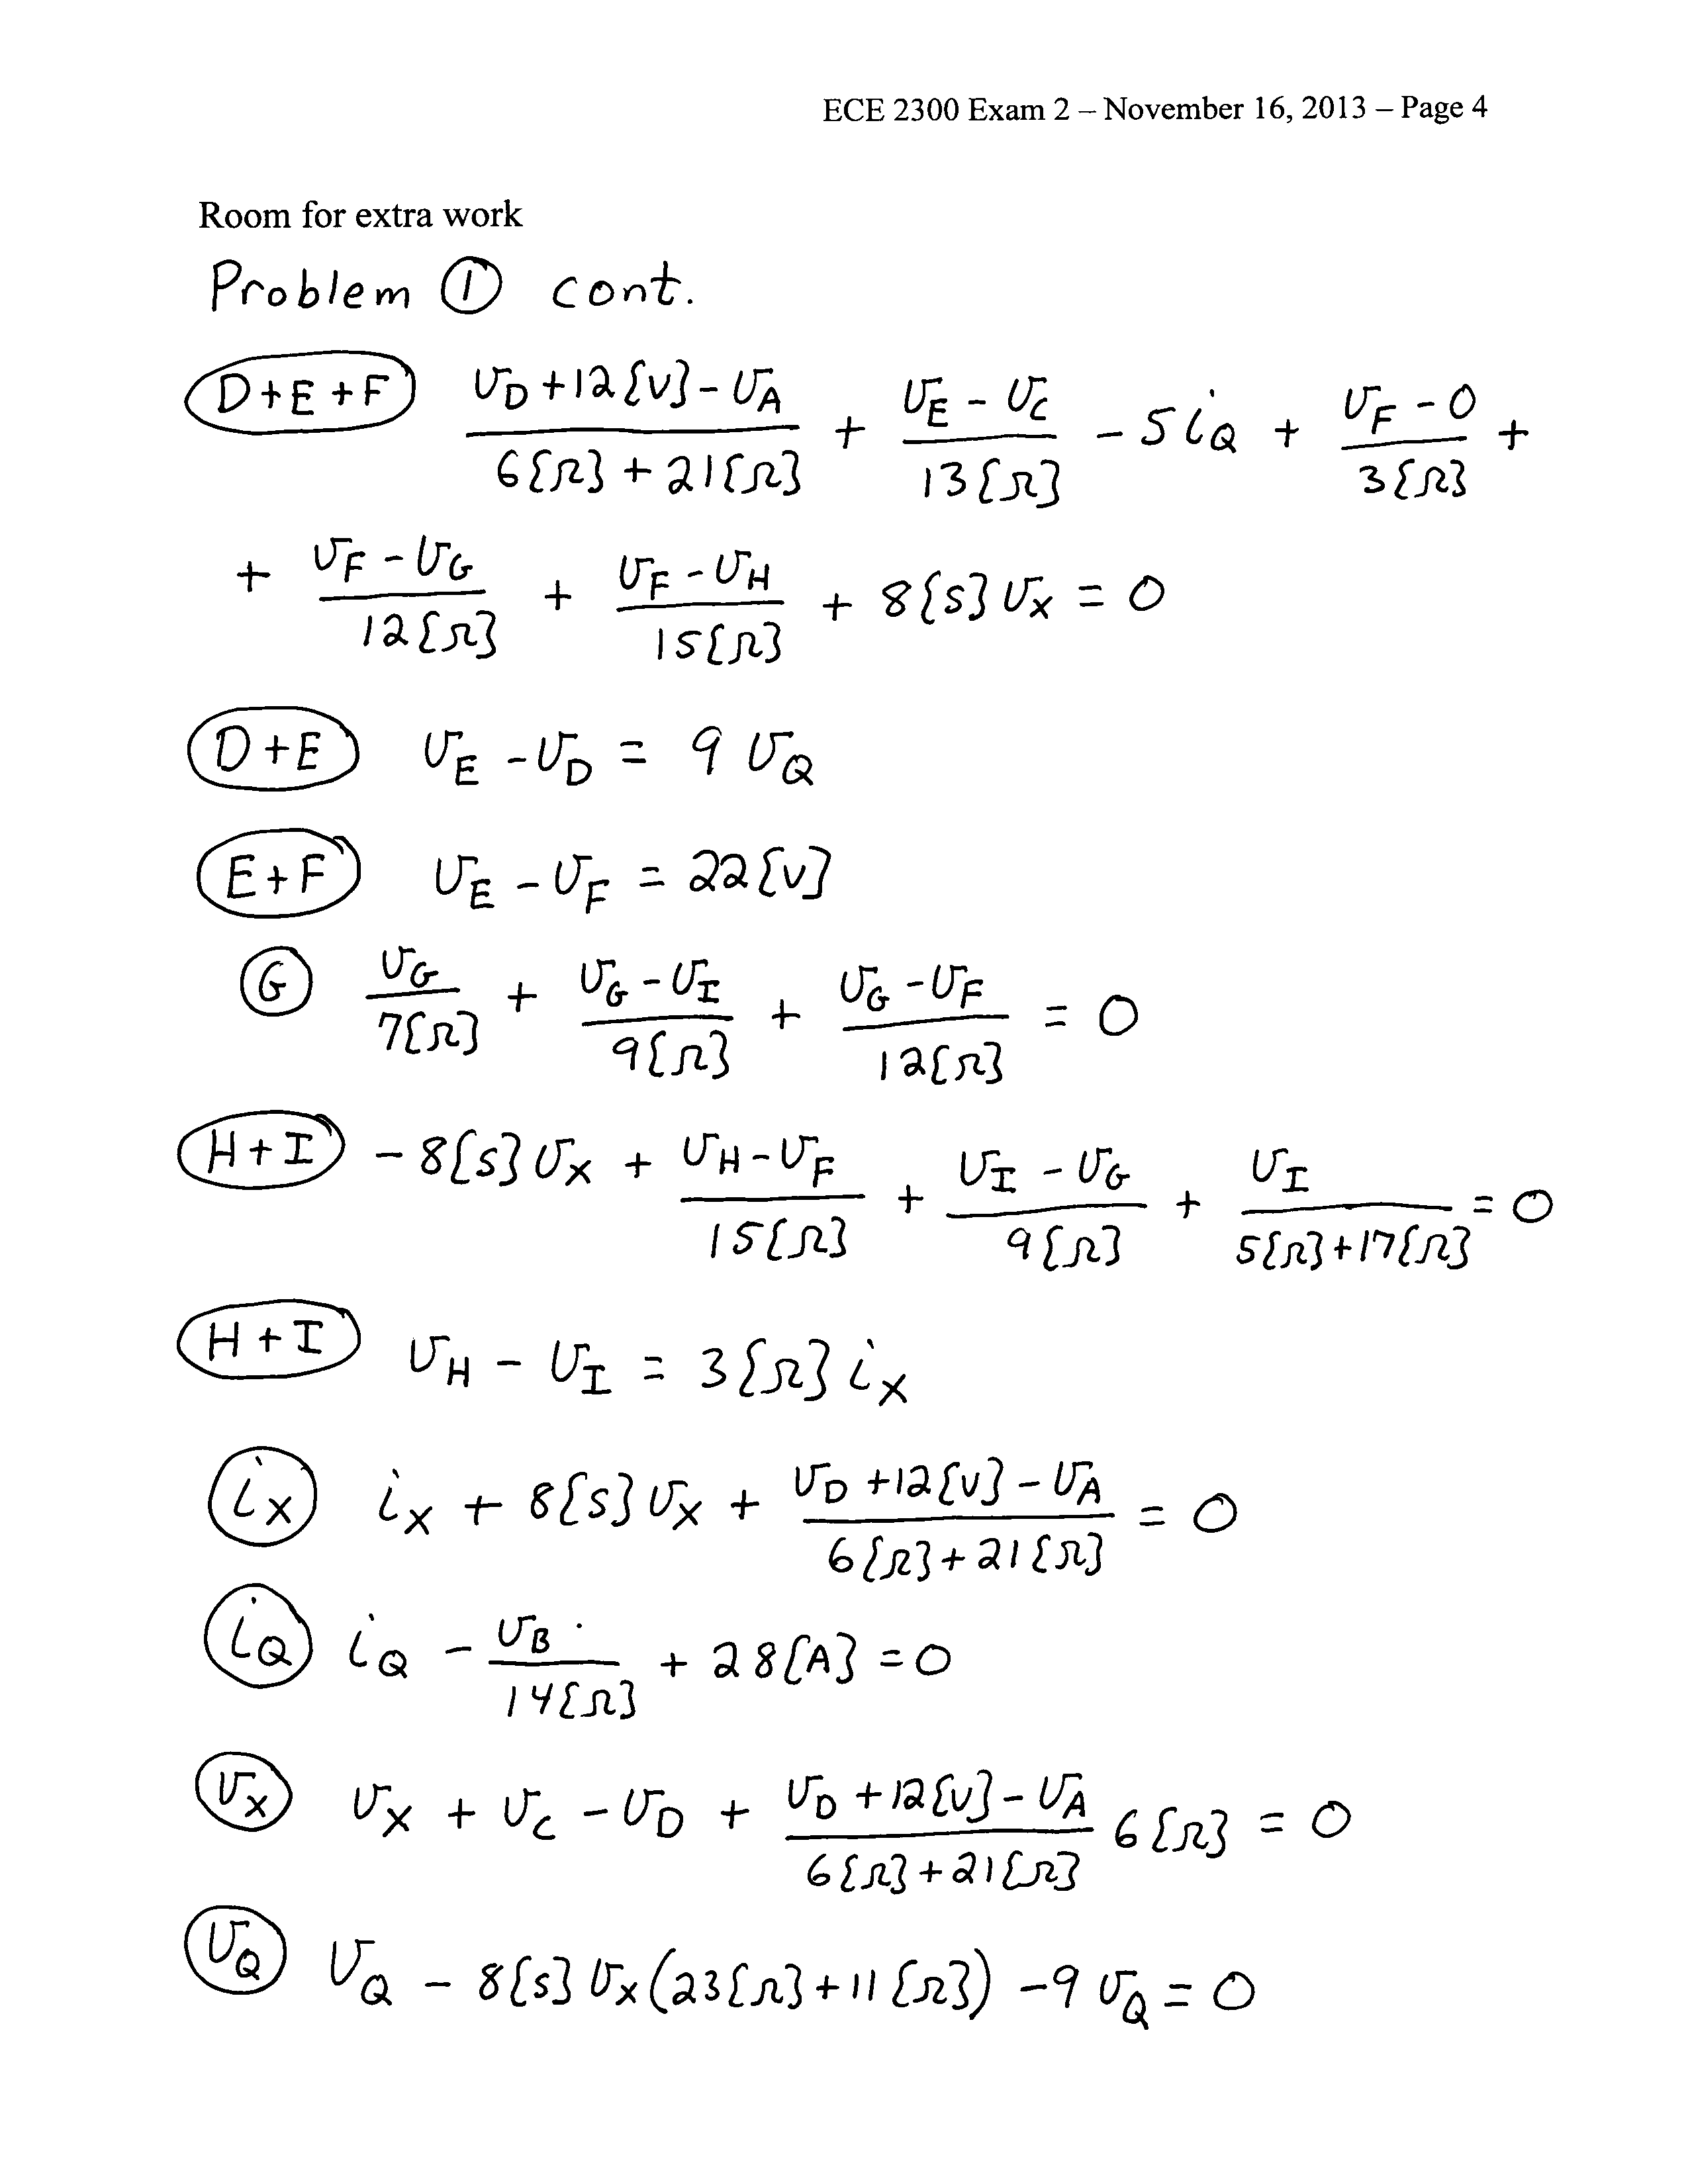 ECE 2300 Exam 2 – November 16, 2013 – Page 4
Room for extra work
Problem ① cont.
D+E+F (v_D + 12{V} - v_A)/(6{Ω} + 21{Ω}) + (v_E - v_C)/(13{Ω}) - 5 i_Q + (v_F - 0)/(3{Ω}) +
+ (v_F - v_G)/(12{Ω}) + (v_F - v_H)/(15{Ω}) + 8{S} v_X = 0
D+E v_E - v_D = 9 v_Q
E+F v_E - v_F = 22{V}
G v_G/(7{Ω}) + (v_G - v_I)/(9{Ω}) + (v_G - v_F)/(12{Ω}) = 0
H+I -8{S} v_X + (v_H - v_F)/(15{Ω}) + (v_I - v_G)/(9{Ω}) + v_I/(5{Ω}+17{Ω}) = 0
H+I v_H - v_I = 3{Ω} i_X
i_X i_X + 8{S} v_X + (v_D + 12{V} - v_A)/(6{Ω} + 21{Ω}) = 0
i_Q i_Q - v_B/(14{Ω}) + 28{A} = 0
v_X v_X + v_C - v_D + (v_D + 12{V} - v_A)/(6{Ω} + 21{Ω}) 6{Ω} = 0
v_Q v_Q - 8{S} v_X (23{Ω} + 11{Ω}) - 9 v_Q = 0